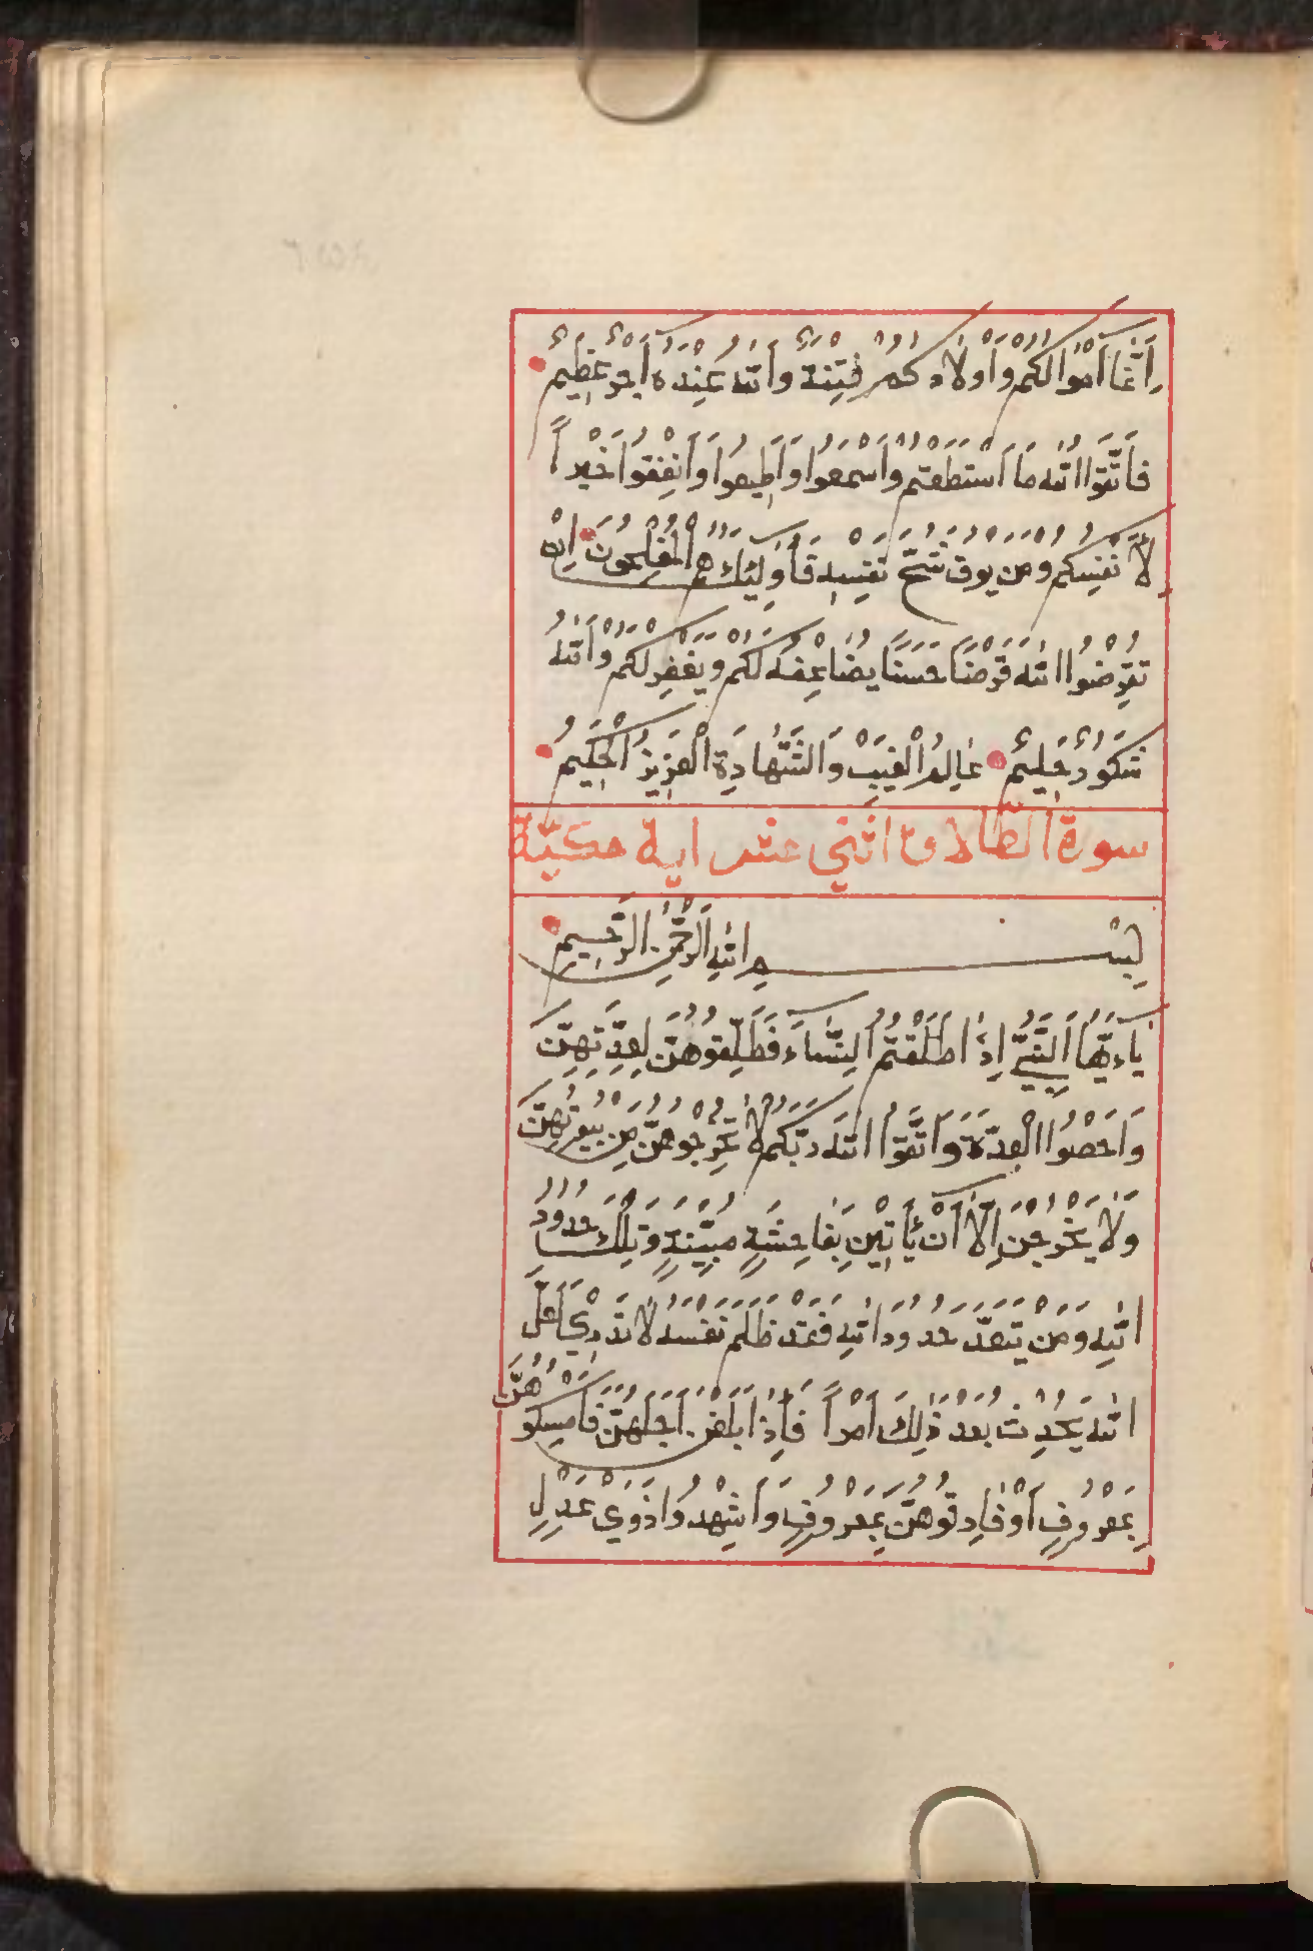 إِنَّمَا أَمْوَالُكُمْ وَأَوْلَادُكُمْ فِتْنَةٌ وَاللَّهُ عِنْدَهُ أَجْرٌ عَظِيمٌ
فَاتَّقُوا اللَّهَ مَا اسْتَطَعْتُمْ وَاسْمَعُوا وَأَطِيعُوا وَأَنْفِقُوا خَيْراً
لِأَنْفُسِكُمْ وَمَنْ يُوقَ شُحَّ نَفْسِهِ فَأُولَئِكَ هُمُ الْمُفْلِحُونَ إِنْ
تُقْرِضُوا اللَّهَ قَرْضًا حَسَنًا يُضَاعِفْهُ لَكُمْ وَيَغْفِرْ لَكُمْ وَاللَّهُ
شَكُورٌ حَلِيمٌ عَالِمُ الْغَيْبِ وَالشَّهَادَةِ الْعَزِيزُ الْحَكِيمُ
سورة الطلاق اثني عشر اية مكيّة
بِسْمِ اللَّهِ الرَّحْمَنِ الرَّحِيمِ
يَاءَيُّهَا النَّبِيُّ إِذَا طَلَّقْتُمُ النِّسَاءَ فَطَلِّقُوهُنَّ لِعِدَّتِهِنَّ
وَأَحْصُوا الْعِدَّةَ وَاتَّقُوا اللَّهَ رَبَّكُمْ لَا تُخْرِجُوهُنَّ مِنْ بُيُوتِهِنَّ
وَلَا يَخْرُجْنَ إِلَّا أَنْ يَأْتِينَ بِفَاحِشَةٍ مُبَيِّنَةٍ وَتِلْكَ حُدُودُ
اللَّهِ وَمَنْ يَتَعَدَّ حُدُودَ اللَّهِ فَقَدْ ظَلَمَ نَفْسَهُ لَا تَدْرِي لَعَلَّ
اللَّهَ يُحْدِثُ بَعْدَ ذَلِكَ أَمْراً فَإِذَا بَلَغْنَ أَجَلَهُنَّ فَأَمْسِكُوهُنَّ
بِمَعْرُوفٍ أَوْ فَارِقُوهُنَّ بِمَعْرُوفٍ وَأَشْهِدُوا ذَوَيْ عَدْلٍ